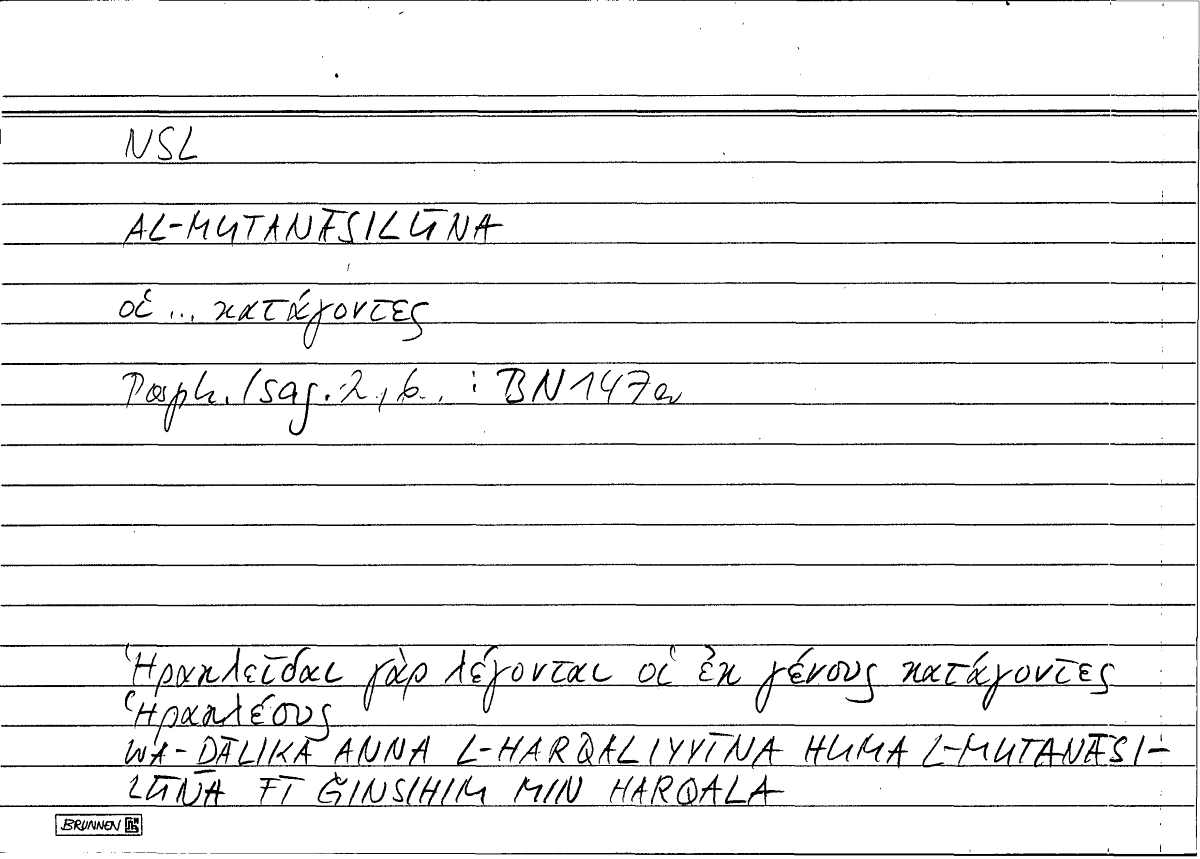 NSL
AL-MUTANĀSILŪNA
οἱ ... κατάγοντες
Porph. Isag. 2, 6 : BN 147a
Ἡρακλεῖδαι γὰρ λέγονται οἱ ἐκ γένους κατάγοντες
Ἡρακλέους
WA-ḎĀLIKA ANNA L-HARQALIYYĪNA HUMA L-MUTANĀSI-
LŪNA FĪ ǦINSIHIM MIN HARQALA
BRUNNEN